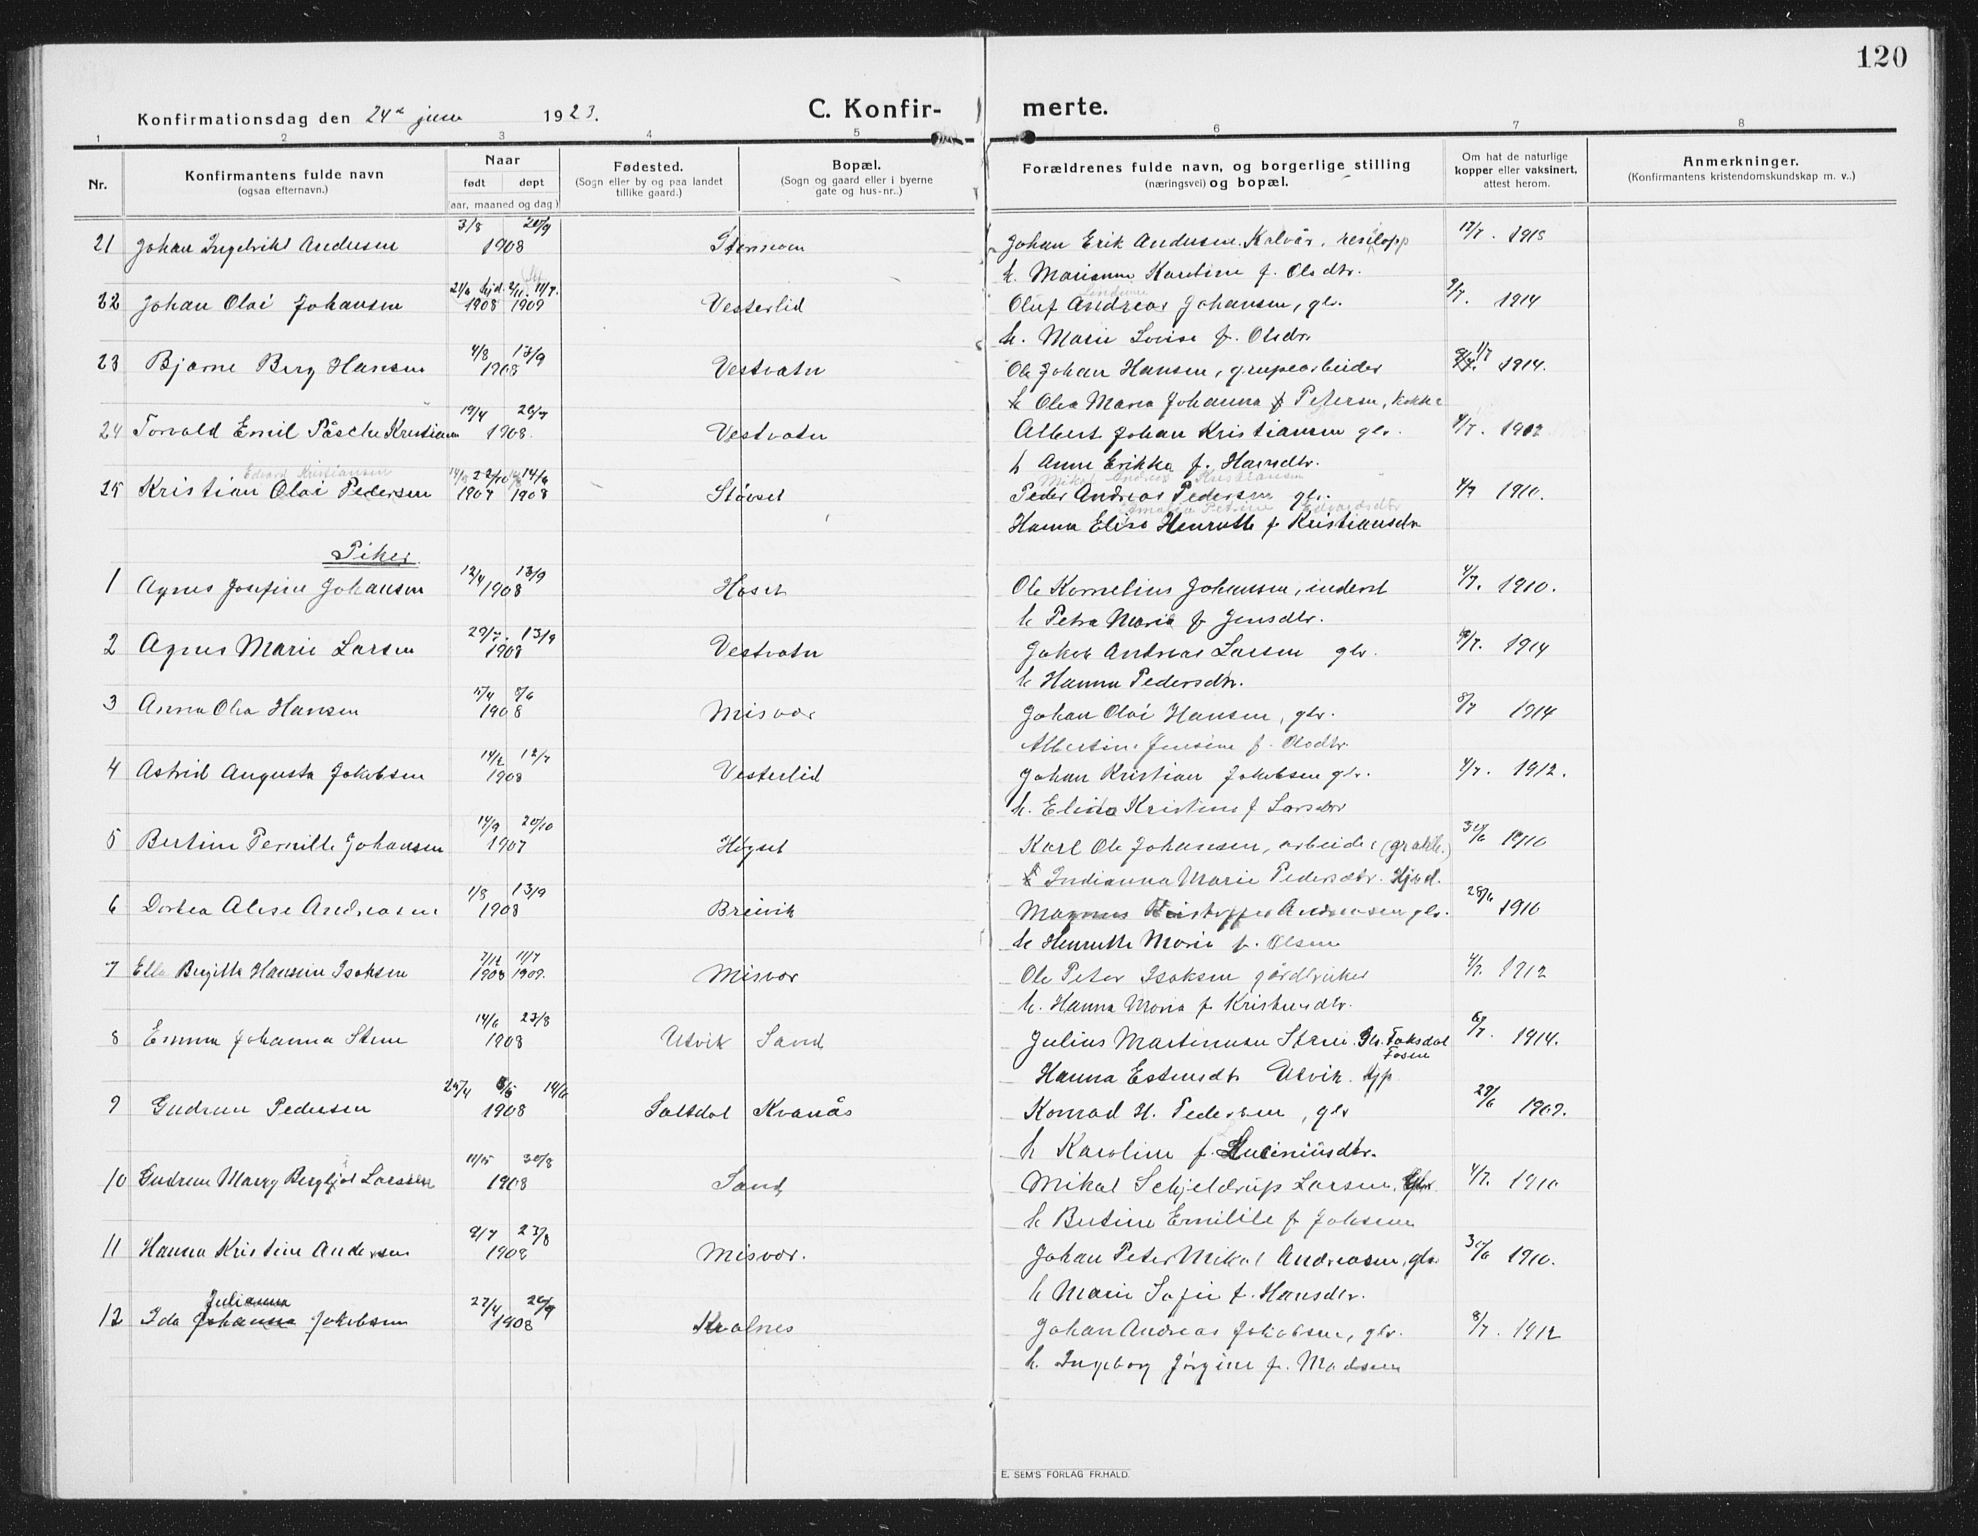 120
Konfirmationsdag den 24de juni 1923. C. Konfir- merte.
1 2 3 4 5 6 7 8
Nr. Konfirmantens fulde navn (ogsaa efternavn.) Naar født døpt (aar, maaned og dag) Fødested. (Sogn eller by og paa landet tillike gaard.) Bopæl. (Sogn og gaard eller i byerne gate og hus-nr..) Forældrenes fulde navn, og borgerlige stilling (næringsvei) og bopæl. Om hat de naturlige kopper eller vaksinert, attest herom. Anmerkninger. (Konfirmantens kristendomskundskap m. v..)
21 Johan Ingebrikt Andersen 3/8 20/9 1908 Johan Erik Andersen Kalvår, 1913
h. Marianne Karoline f. Olsdtr.
22 Johan Olai Johansen 21/6 hjd. 2/11 11/7. 1908 1909 Vesterlid Oluf Andreas Johansen, gbr. 9/7. 1914
h. Marie Lovise f. Olsdtr.
23 Bjarne Berg Hansen 4/8 13/9 1908 Vestvatn Ole Johan Hansen, grupearbeider 1/7 1914.
h Olea Maria Johanna f Petersen, kokke
24 Torvald Emil Påsche Kristiansen 19/4 26/7 1908. Vestvatn Albert Johan Kristiansen gbr. 4/7. 1912
h Anne Erikka f. Hansdtr.
Edvard Kristiansen Mikal Andreas Kristiansen
25 Kristian Olai Pedersen 22/10 14/6 1907 1908 Støvset Peder Andreas Pedersen gbr. 4/7 1910.
Amalia Petrine Edvardsdtr
Hanna Elise Henriette f Kristiansdtr
Piker
1 Agnes Josefine Johansen 12/4 13/9 1908 Høset Ole Kornelius Johansen, inderst 4/7. 1910.
h Petra Maria f Jensdtr.
2 Agnes Marie Larsen 29/7. 13/9 1908 Vestvatn Jakob Andreas Larsen gbr. 9/7. 1914
h Hanna Pedersdtr.
3 Anna Olea Hansen 5/4 8/6 1908 Misvær Johan Olai Hansen, gbr. 8/7 1914
Albertine Jensine f. Olsdtr.
4 Astrid Augusta Jakobsen 14/2 12/7 1908 Vesterlid Johan Kristian Jakobsen gbr. 4/7. 1912.
h. Elida Kristine f Larsdtr
5 Bertine Pernille Johansen 14/9 20/10 1907 Høgset Karl Ole Johansen, arbeider 30/6 1910
h Indianna Marie Pedersdtr.
6 Dortea Alise Andreasen 1/8 13/9 1908 Breivik Magnus Kristoffer Andreasen gbr. 28/6 1910
h Henriette Maria f. Olsen
7 Ella Birgitte Hansine Isaksen 7/12 11/7 1908 1909. Misvær Ole Peter Isaksen gårdbruker 4/7. 1912
h. Hanna Maria f Kristensdtr.
8 Emma Johanna Stene 14/6 23/8 1908 Utvik Sand Julius Martinusen Stene Gbr. Foksdal Fosen 6/7. 1914.
Hanna Estensdtr Utvik.
9 Gudrun Pedersen 25/4 14/6 1908 Saltdal Kvanås Konrad H. Pedersen, gbr 29/6 1909.
h Karoline f. Luciniusdtr.
10 Gudrun Marry Bergljot Larsen 11/5 30/8 1908 Sand Mikal Schjeldrup Larsen, Gbr. 4/7. 1910
h Bertine Emilie f Johnsen
11 Hanna Kristine Andersen 9/7 23/8 1908 Misvær. Johan Peter Mikal Andreasen, gbr 30/6 1910.
h Marie Sofie f. Hansdtr.
Julianna
12 Ida Johanna Jakobsen 27/4 20/9 1908 Kvalnes Johan Andreas Jakobsen, gbr. 8/7. 1912
h. Ingeborg Jørgine f. Madsen
E. SEM'S FORLAG FR.HALD.